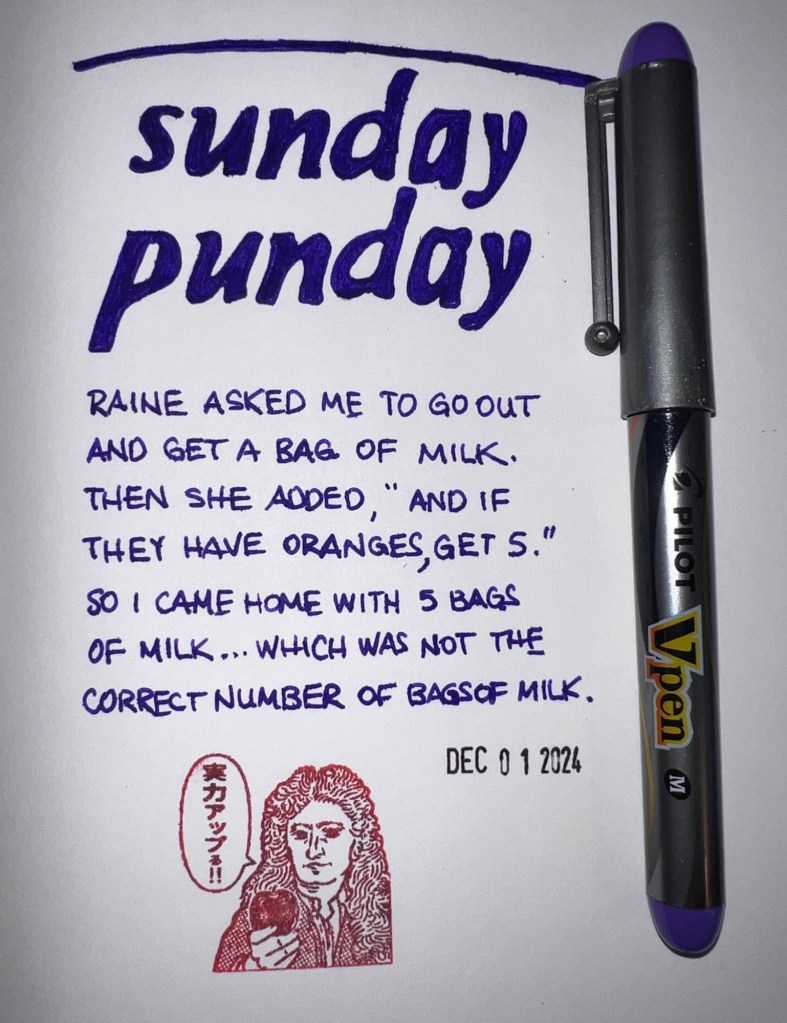 sunday
punday
RAINE ASKED ME TO GO OUT
AND GET A BAG OF MILK.
THEN SHE ADDED, "AND IF
THEY HAVE ORANGES, GET 5."
SO I CAME HOME WITH 5 BAGS
OF MILK... WHICH WAS NOT THE
CORRECT NUMBER OF BAGS OF MILK.
DEC 01 2024
実力アップる!!
PILOT
Vpen
M